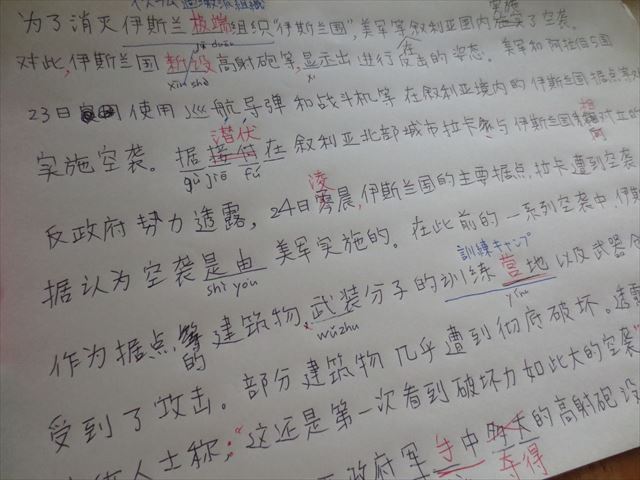 イスラム過激派組織
为了消灭伊斯兰极端组织"伊斯兰国",美军等叙利亚国内实施了空袭。
jí duān
对此,伊斯兰国新设高射砲等,显示出进行反击的姿态。美军和阿拉伯5国
xīn shè
xi
23日使用巡航导弹和战斗机等在叙利亚境内的伊斯兰国据点等
潜伏
实施空袭。据接付在叙利亚北部城市拉卡与伊斯兰国对立的
gù jiē fú
凌
反政府势力透露,24日零晨,伊斯兰国的主要据点,拉卡遭到空袭
据认为空袭是由美军实施的。在此前的一系列空袭中,伊斯
shì yóu
訓練キャンプ
作为据点的建筑物,武装分子的训练营地以及武器
wǔzhu
yín
受到了攻击。部分建筑物几乎遭到彻底破坏。透露
人士称:"这还是第一次看到破坏力如此大的空袭"
政府军手中夺得的高射砲设